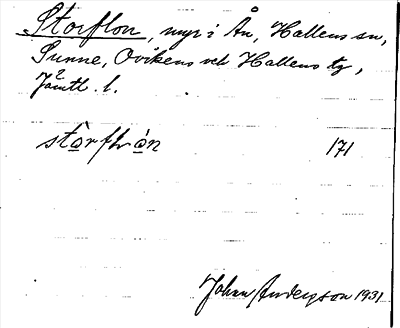 Storflon, myr i Ån, Hallens sn,
Sunne, Ovikens och Hallens tg,
Jämtl. l.
2
171
Johan Anderson 1931